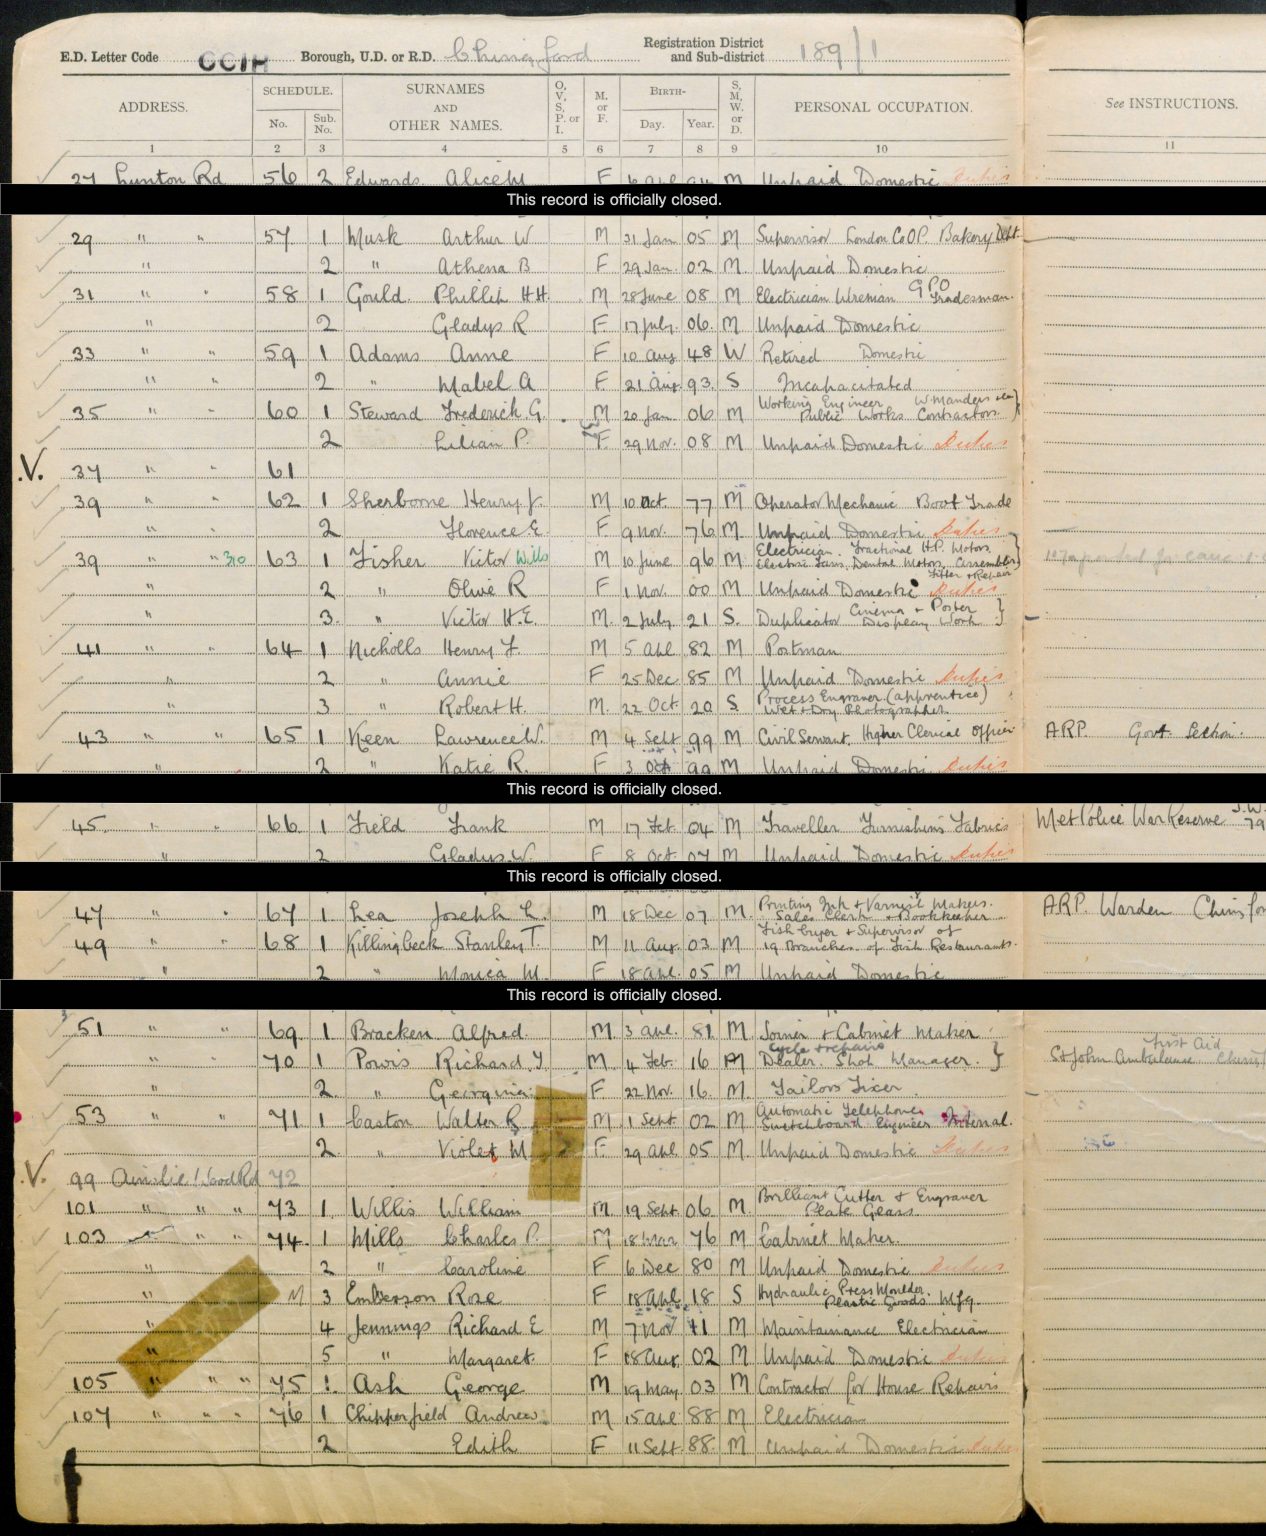 E.D. Letter Code CCIH Borough, U.D. or R.D. Chingford Registration District and Sub-district 189/1
ADDRESS. SCHEDULE. No. Sub. No. SURNAMES AND OTHER NAMES. O, V, S, P. or I. M. or F. BIRTH- Day. Year. S, M, W, or D. PERSONAL OCCUPATION. See INSTRUCTIONS.
1 2 3 4 5 6 7 8 9 10 11
27 Lunton Rd 56 2 Edwards Alice M F M Unpaid Domestic Duties
This record is officially closed.
29 " " 57 1 Musk Arthur W M 31 Jan 05 M Supervisor London CoOP. Bakery Dept.
" 2 " Athena B F 29 Jan. 02 M. Unpaid Domestic
31 " " 58 1 Gould. Phillip H H. M 28 June 08 M Electrician Wireman GPO Tradesman.
" 2 Gladys R F 17 July. 06. M Unpaid Domestic
33 " " 59 1 Adams Anne F 10 Aug 48 W Retired Domestic
" " 2 " Mabel A F 21 Aug. 93. S Incapacitated
35 " " 60 1 Steward Frederick G. M 20 Jan. 06 M Working Engineer W. Manders Public Works Contractors }
2 Lilian P. F 29 Nov. 08 M Unpaid Domestic Duties
.V. 37 " " 61
39 " " 62 1 Sherborne Henry J. M 10 Oct. 77 M Operator Mechanic Boot Trade
" " 2 Florence E. F 9 Nov. 76 M. Unpaid Domestic Duties
39 " " 310 63 1 Fisher Victor Wills M 10 June 96 M Electrician. Fractional H.P. Motors. Electric Fans. Dental Motors Assembler Fitter + Repair }
" 2 " Olive R F 1 Nov. 00 M Unpaid Domestic Duties
" 3. " Victor H.E. M. 2 July 21 S. Duplicator Cinema + Poster Display Work }
41 " " 64 1 Nicholls Henry F. M 5 Apl 82 M Postman
" 2 " Annie F 25 Dec 85 M Unpaid Domestic Duties
" 3 " Robert H. M. 22 Oct 20 S Process Engraver (apprentice) Wet + Dry Photographer
43 " " 65 1 Keen Lawrence W. M 4 Sept 99 M Civil Servant. Higher Clerical Officer ARP. Govt Section.
" 2 " Katie R. F 3 Oct 99 M Unpaid Domestic Duties
This record is officially closed.
45. " " 66 1 Field Frank M 17 Feb. 04 M Traveller Furnishing Fabrics Met Police War Reserve
" 2 Gladys W. F 8 Oct. 07 M Unpaid Domestic Duties
This record is officially closed.
47 " " 67 1. Lea Joseph L. M 18 Dec 07 M. Printing Ink + Varnish Makers. Sales Clerk + Bookkeeper ARP. Warden
49 " " 68 1 Killingbeck Stanley T. M 11 Aug. 03 M Fish buyer + Supervisor of 19 Branches of Fish Restaurants.
" 2 " Monica M. F 18 Apl. 05 M Unpaid Domestic
This record is officially closed.
51 " " 69 1 Bracken Alfred M 3 Apl. 81 M Joiner + Cabinet Maker
" " 70 1 Powis Richard J. M. 4 Feb. 16 M Cycle + repairs Dealer. Shop Manager. } St John Ambulance First Aid
" 2. " Georgina F 22 Nov. 16. M. Tailors Fixer
53 " " 71 1 Caston Walter R M 1 Sept 02 M Automatic Telephone Switchboard Engineer Internal.
" " 2. " Violet M F 29 Apl 05 M. Unpaid Domestic Duties
.V. 99 Ainslie Wood Rd 72
101 " " " 73 1. Willis William M 19 Sept. 06 M. Brilliant Cutter + Engraver Plate Glass
103 " " 74. 1 Mills Charles P. M 18 Mar 76 M Cabinet Maker.
" 2 " Caroline F 6 Dec 80 M Unpaid Domestic Duties
" M 3 Emberson Rose F 18 Apl 18 S Hydraulic Press Moulder. Plastic Goods Mfg.
" 4 Jennings Richard E M 7 Nov 11 M Maintainance Electrician
" 5 " Margaret. F 18 Aug. 02 M Unpaid Domestic Duties
105 " " " 75 1. Ash George M 19 May 03 M Contractor for House Repairs
107 " " " 76 1 Chipperfield Andrew. M 15 Apl 88 M Electrician
2 Edith F 11 Sept 88. M Unpaid Domestic Duties